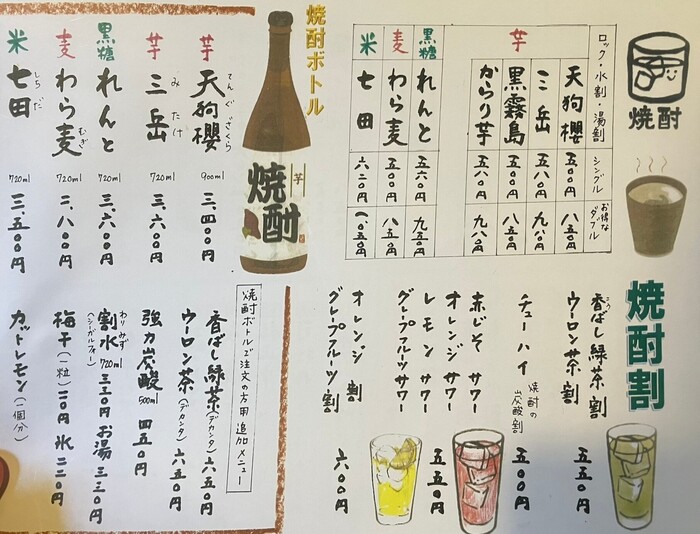 焼酎
ロック・水割・湯割
シングル
お得な
ダブル
芋
天狗櫻
五〇〇円
八五〇円
三岳
五八〇円
九八〇円
黒霧島
五〇〇円
八五〇円
からり芋
五八〇円
九八〇円
黒糖
れんと
五六〇円
九五〇円
麦
わら麦
五〇〇円
八五〇円
米
七田
六二〇円
一、〇五〇円
焼酎割
香ばし緑茶割
こう
ウーロン茶割
五五〇円
チューハイ
焼酎の
炭酸割
五〇〇円
赤じそサワー
オレンジサワー
レモンサワー
グレープフルーツサワー
五五〇円
オレンジ割
グレープフルーツ割
六〇〇円
焼酎ボトル
芋
焼酎
芋
天狗櫻
てんぐざくら
900ml
三、四〇〇円
芋
三岳
みたけ
720ml
三、六〇〇円
黒糖
れんと
720ml
三、六〇〇円
麦
わら麦
むぎ
720ml
二、八〇〇円
米
七田
しちだ
720ml
三、五〇〇円
焼酎ボトルご注文の方用 追加メニュー
香ばし緑茶(デカンタ) 六五〇円
ウーロン茶(デカンタ) 六五〇円
強力炭酸 500ml 四五〇円
割水 720ml 三三〇円 お湯 三三〇円
わりみず
(シリカルフォー)
梅干(一粒)一一〇円 氷 二二〇円
カットレモン(一個分)